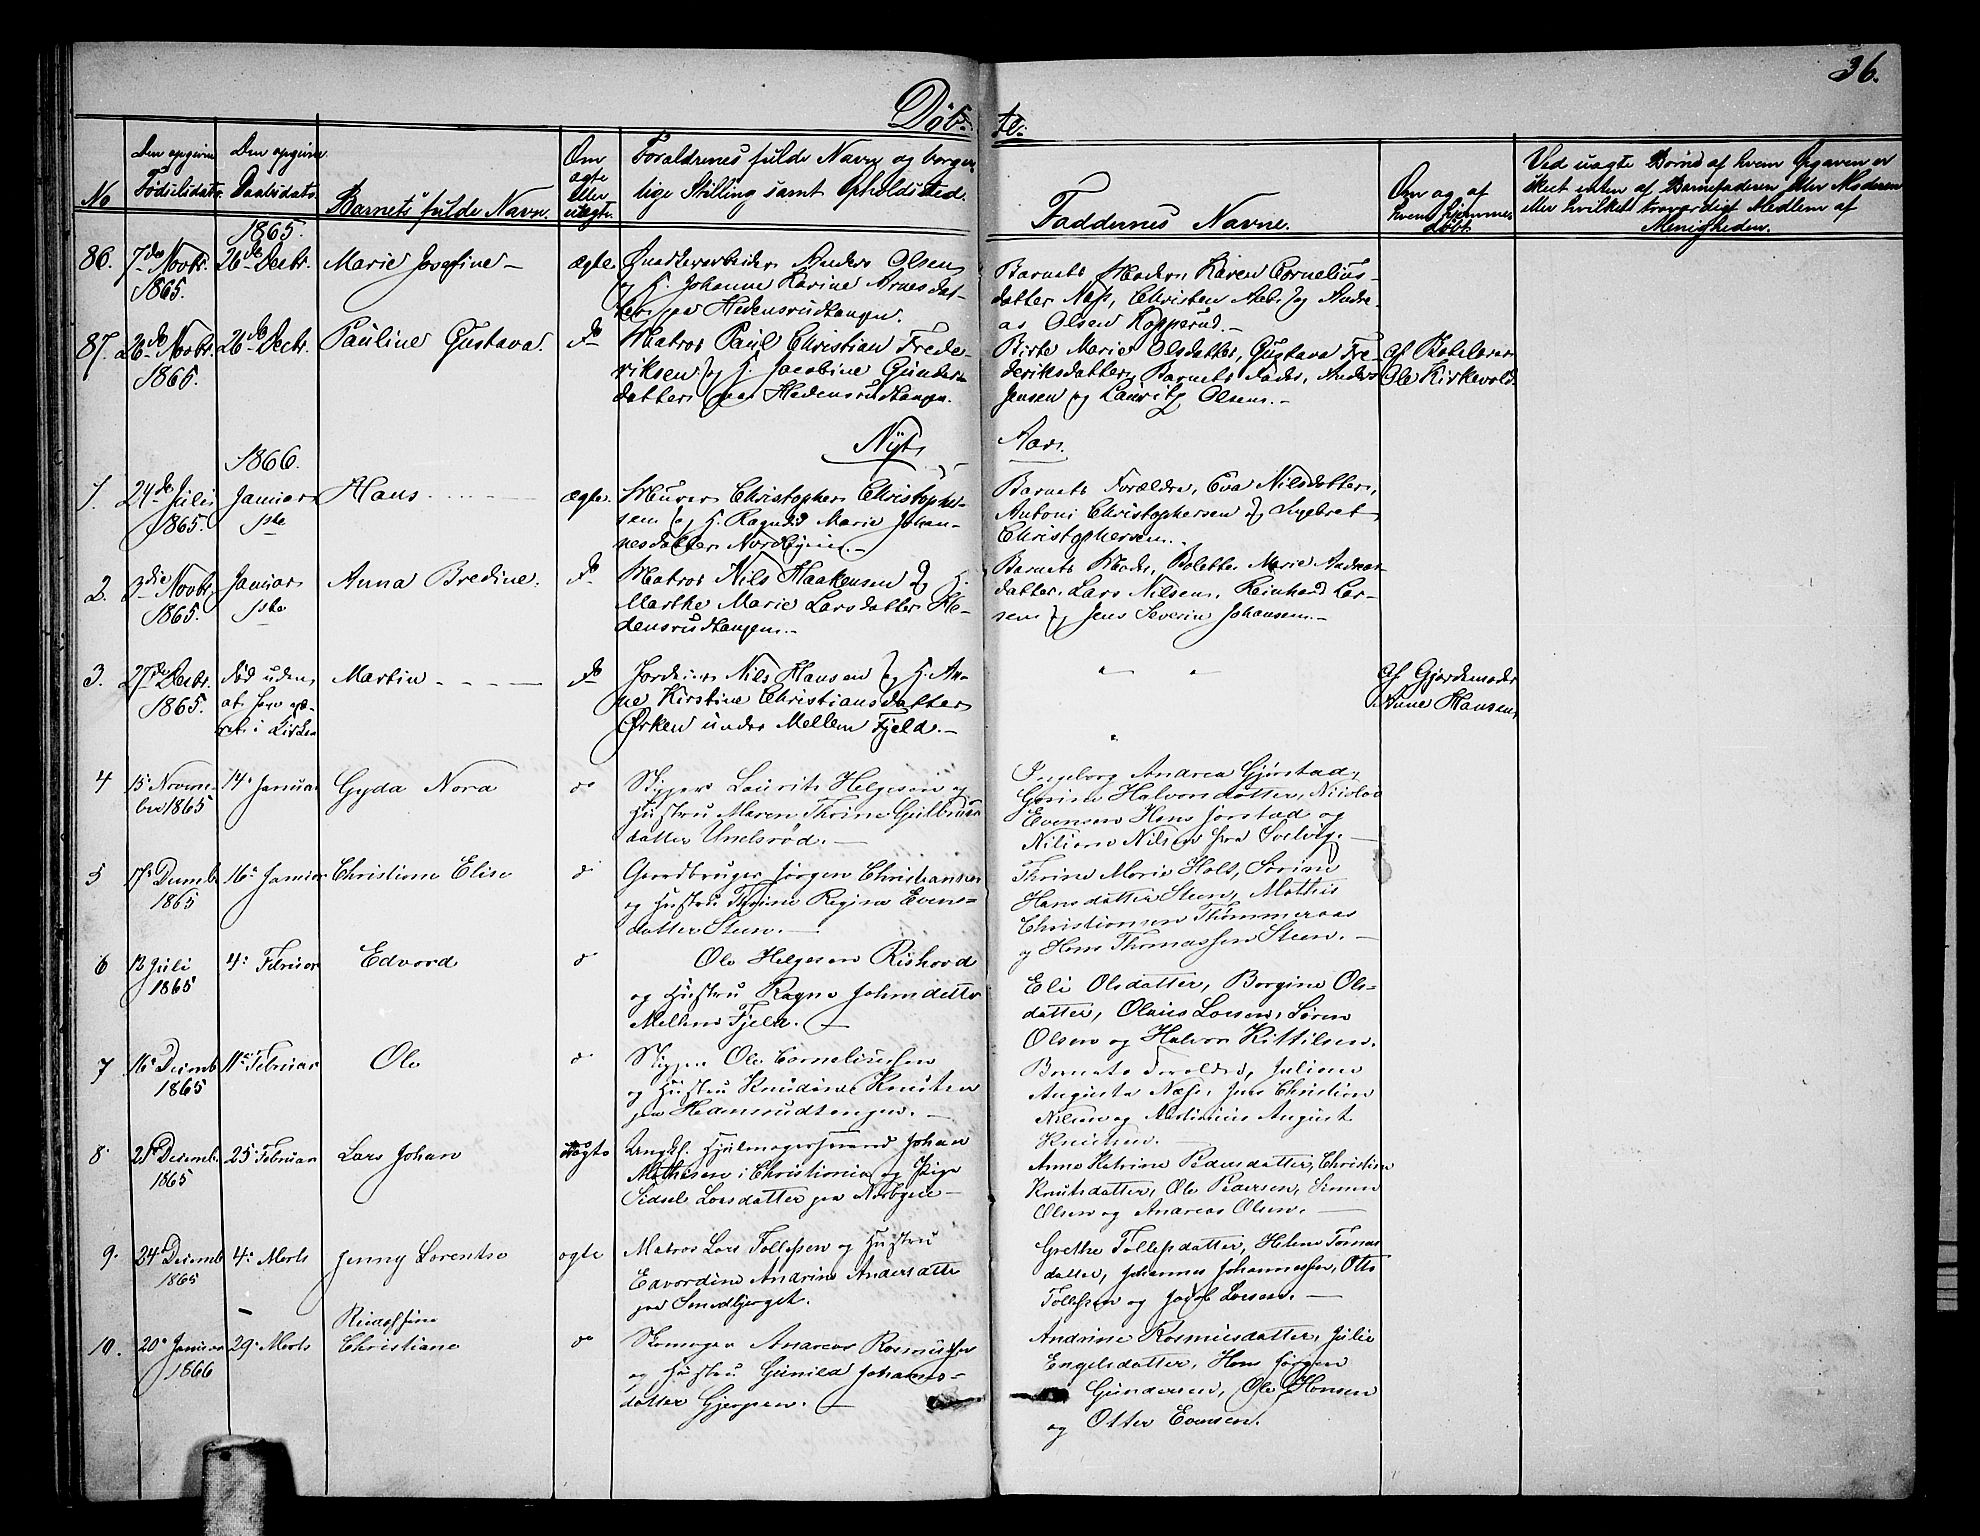 36.
Døb-
te.
No
Den opgivne Fødselsdato.
Den opgivne Daabsdato.
Barnets fulde Navn.
Om ægte eller uægte.
Forældrenes fulde Navn og borger-
lige Stilling samt Opholdssted.
Faddernes Navne.
Om og af hvem hjemme-
døbt
Ved uægte Børn af hvem Opgaven er
skeet enten af Barnefaderen eller Moderen
eller hvilket troværdigt Medlem af
Menigheden.
1865.
86. 7de Novbr. 1865. 26de Decbr. Marie Josefine ægte
Anders Olsen
og H. Johanne Karine Arnesdat-
ter paa Hedensrudtangen.
Barnets Moder, Karen Cornelius-
datter Næss, Christen Aabs. og Andre-
as Olsen Kopperud.
87. 26de Novbr. 1865. 26de Decbr. Pauline Gustava. do
Matros Paul Christian Frede-
riksen og H. Jacobine Gunder-
datter paa Hedensrudtangen.
Birte Marie Olsdatter, Gustava Fre-
deriksdatter, Barnets Fader, Anders
Jensen og Lauritz Olsen.
af
Ole Kirkevold
Nyt
Aar.
1866.
1. 24de Juli 1865. Januar 1ste Hans ægte
Murer Christopher Christopher-
sen og H. Ragnild Marie Johan-
nesdatter Nordbyeie.
Barnets Forældre, Eva Nilsdatter,
Antoni Christophersen og Engebret
Christophersen.
2. 3die Novbr. 1865. Januar 1ste Anna Bredine. do
Matros Nils Haakensen og H.
Marthe Marie Larsdatter He-
densrudtangen.
Barnets Moder, Bolette Marie Andreas-
datter, Lars Nilsen, Reinhard Lar-
sen og Jens Severin Johansen.
3. 27de Decbr. 1865. død uden
at have væ-
ret i Kirken
Martin do
Jordeier Nils Hansen og H. An-
ne Kirstine Christiansdatter
Ørken under Mellem Fjeld.
" "
"
af Gjordemoder
Anne Hansen
4 15. Novem-
ber 1865 14. Januar Gyda Nora do
Skipper Laurits Helgesen og
Hustru Maren Thrine Gulbrands
datter Unelsrød.
Ingeborg Andrea Gjørstad,
Gorine Halvorsdatter, Nicolai
Evensen Hans Jørstad og
Nilsen fra Svelvig.
5 17. Decemb. 1865 16. Januar Christiane Elise do
Gaardbruger Jørgen Christiansen
og Hustru Thrine Regine Evens-
datter Steen.
Thrine Marie Holt, Sørine
Hansdatter Steen, Mathis
Christiansen Thømmeraas
og Hans Thomassen Steen.
6 13 Juli 1865 4. Februar Edvard do
Ole Helgesen Rishovd
og Hustru Ragne Johnsdatter
Mellem Fjeld.
Eli Olsdatter, Borgine Ols-
datter, Olaus Larsen, Søren
Olsen og Halvor Kittilsen.
7 16. Decemb. 1865 11. Februar Ole do
Skipper Ole Corneliussen
og Hustru Knudine Knutsen
paa Hedensrudtangen.
Barnets Forældre, Juliane
Augusta Næss, Jens Christian
Nilsen og Martinius August
Knutsen.
8 21. Decemb. 1865 25 Februar Lars Johan uægte
Ungk. Hjulmagersvend Johan
Mathisen i Christiania og Pige
Sidsel Larsdatter paa Norbyeie
Anne Katrine Pedersdatter, Christian
Knutsdatter, Ole Pedersen, Simen
Olsen og Andreas Olsen.
9. 24. Decemb. 1865 4. Marts Jenny Lorentse ægte
Matros Lars Tollefsen og Hustru
Edvardine Andrine Andersdatter
paa Smedbjerget.
Grethe Tollefsdatter, Helene Tomas-
datter, Johannes Johannessen, Otto
Tollefsen og Jacob Larsen.
10. 20. Januar 1866 29. Marts
Christiane do
Skomager Andreas Rasmussen
og Hustru Gunild Johans-
datter Gjerpen.
Andrine Rasmusdatter, Julie
Engelsdatter, Hans Jørgen
Gundersen, Ole Hansen
og Otter Evensen.